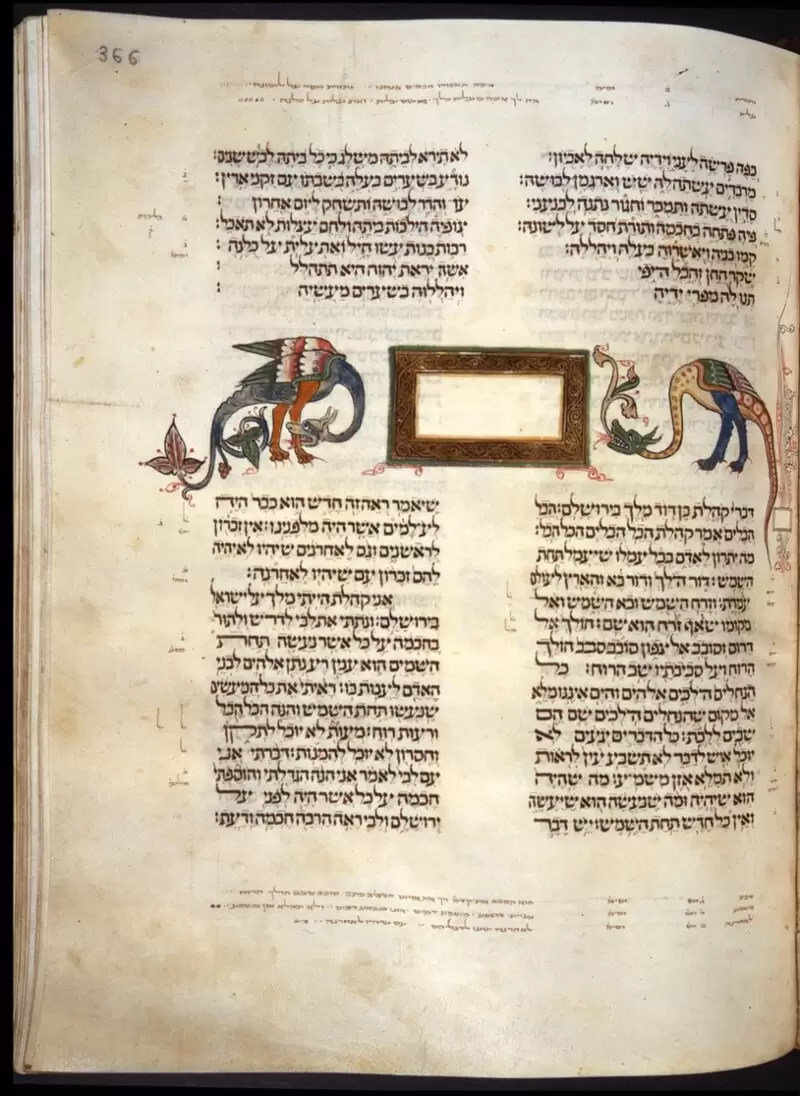 366
כפה פרשה לעני וידיה שלחה לאביון: לא תירא לביתה משלג כי כל ביתה לבש שנים:
מרבדים עשתה לה שש וארגמן לבושה: נודע בשערים בעלה בשבתו עם זקני ארץ:
סדין עשתה ותמכר וחגור נתנה לכנעני: עז והדר לבושה ותשחק ליום אחרון
פיה פתחה בחכמה ותורת חסד על לשונה: צופיה הילכות ביתה ולחם עצלות לא תאכל:
קמו בניה ויאשרוה בעלה ויהללה: רבות בנות עשו חיל ואת עלית על כלנה
שקר החן והבל היפי אשה יראת יהוה היא תתהלל
תנו לה מפרי ידיה ויהללוה בשערים מעשיה
דברי קהלת בן דוד מלך בירושלם: הבל
הבלים אמר קהלת הבל הבלים הכל הבל:
מה יתרון לאדם בכל עמלו שיעמל תחת
השמש: דור הלך ודור בא והארץ לעולם
עמדת: וזרח השמש ובא השמש ואל
מקומו שואף זרח הוא שם: הולך אל
דרום וסובב אל צפון סובב סבב הולך
הרוח ועל סביבתיו שב הרוח: כל
הנחלים הלכים אל הים והים איננו מלא
אל מקום שהנחלים הלכים שם הם
שבים ללכת: כל הדברים יגעים לא
יוכל איש לדבר לא תשבע עין לראות
ולא תמלא אזן משמע: מה שהיה
הוא שיהיה ומה שנעשה הוא שיעשה
ואין כל חדש תחת השמש: יש דבר
שיאמר ראה זה חדש הוא כבר היה
לעלמים אשר היה מלפנינו: אין זכרון
לראשנים וגם לאחרנים שיהיו לא יהיה
להם זכרון עם שיהיו לאחרנה:
אני קהלת הייתי מלך על ישראל
בירושלם: ונתתי את לבי לדריש ולתור
בחכמה על כל אשר נעשה תחת
השמים הוא ענין רע נתן אלהים לבני
האדם לענות בו: ראיתי את כל המעשים
שנעשו תחת השמש והנה הכל הבל
ורעות רוח: מעות לא יוכל לתקן
וחסרון לא יוכל להמנות: דברתי אני
עם לבי לאמר אני הנה הגדלתי והוספתי
חכמה על כל אשר היה לפני על
ירושלם ולבי ראה הרבה חכמה ודעת: